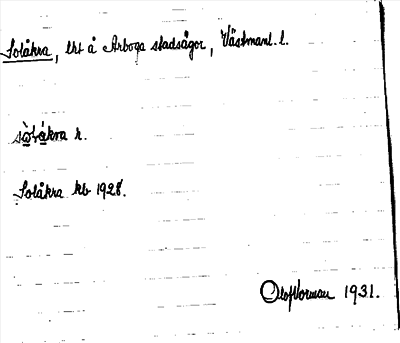 Solåkra, lht å Arboga stadsägor, Västmanl. l.
sòlákra r.
Solåkra kb 1928.
Olof Norman 1931.